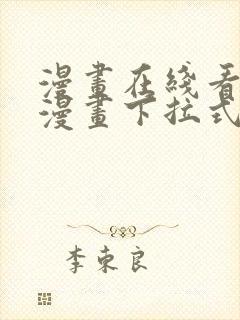 漫畫在綫看
漫畫下拉式
李東良